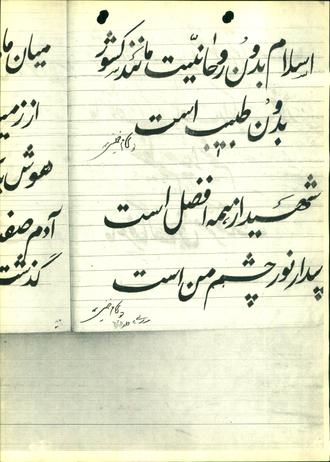 اسلام بدون روحانیت مانند کشور
بدون طبیب است
شهید از همه افضل است
پسدار نور چشم من است
میان ما
از زمی
هوش
آدم صف
گذشت